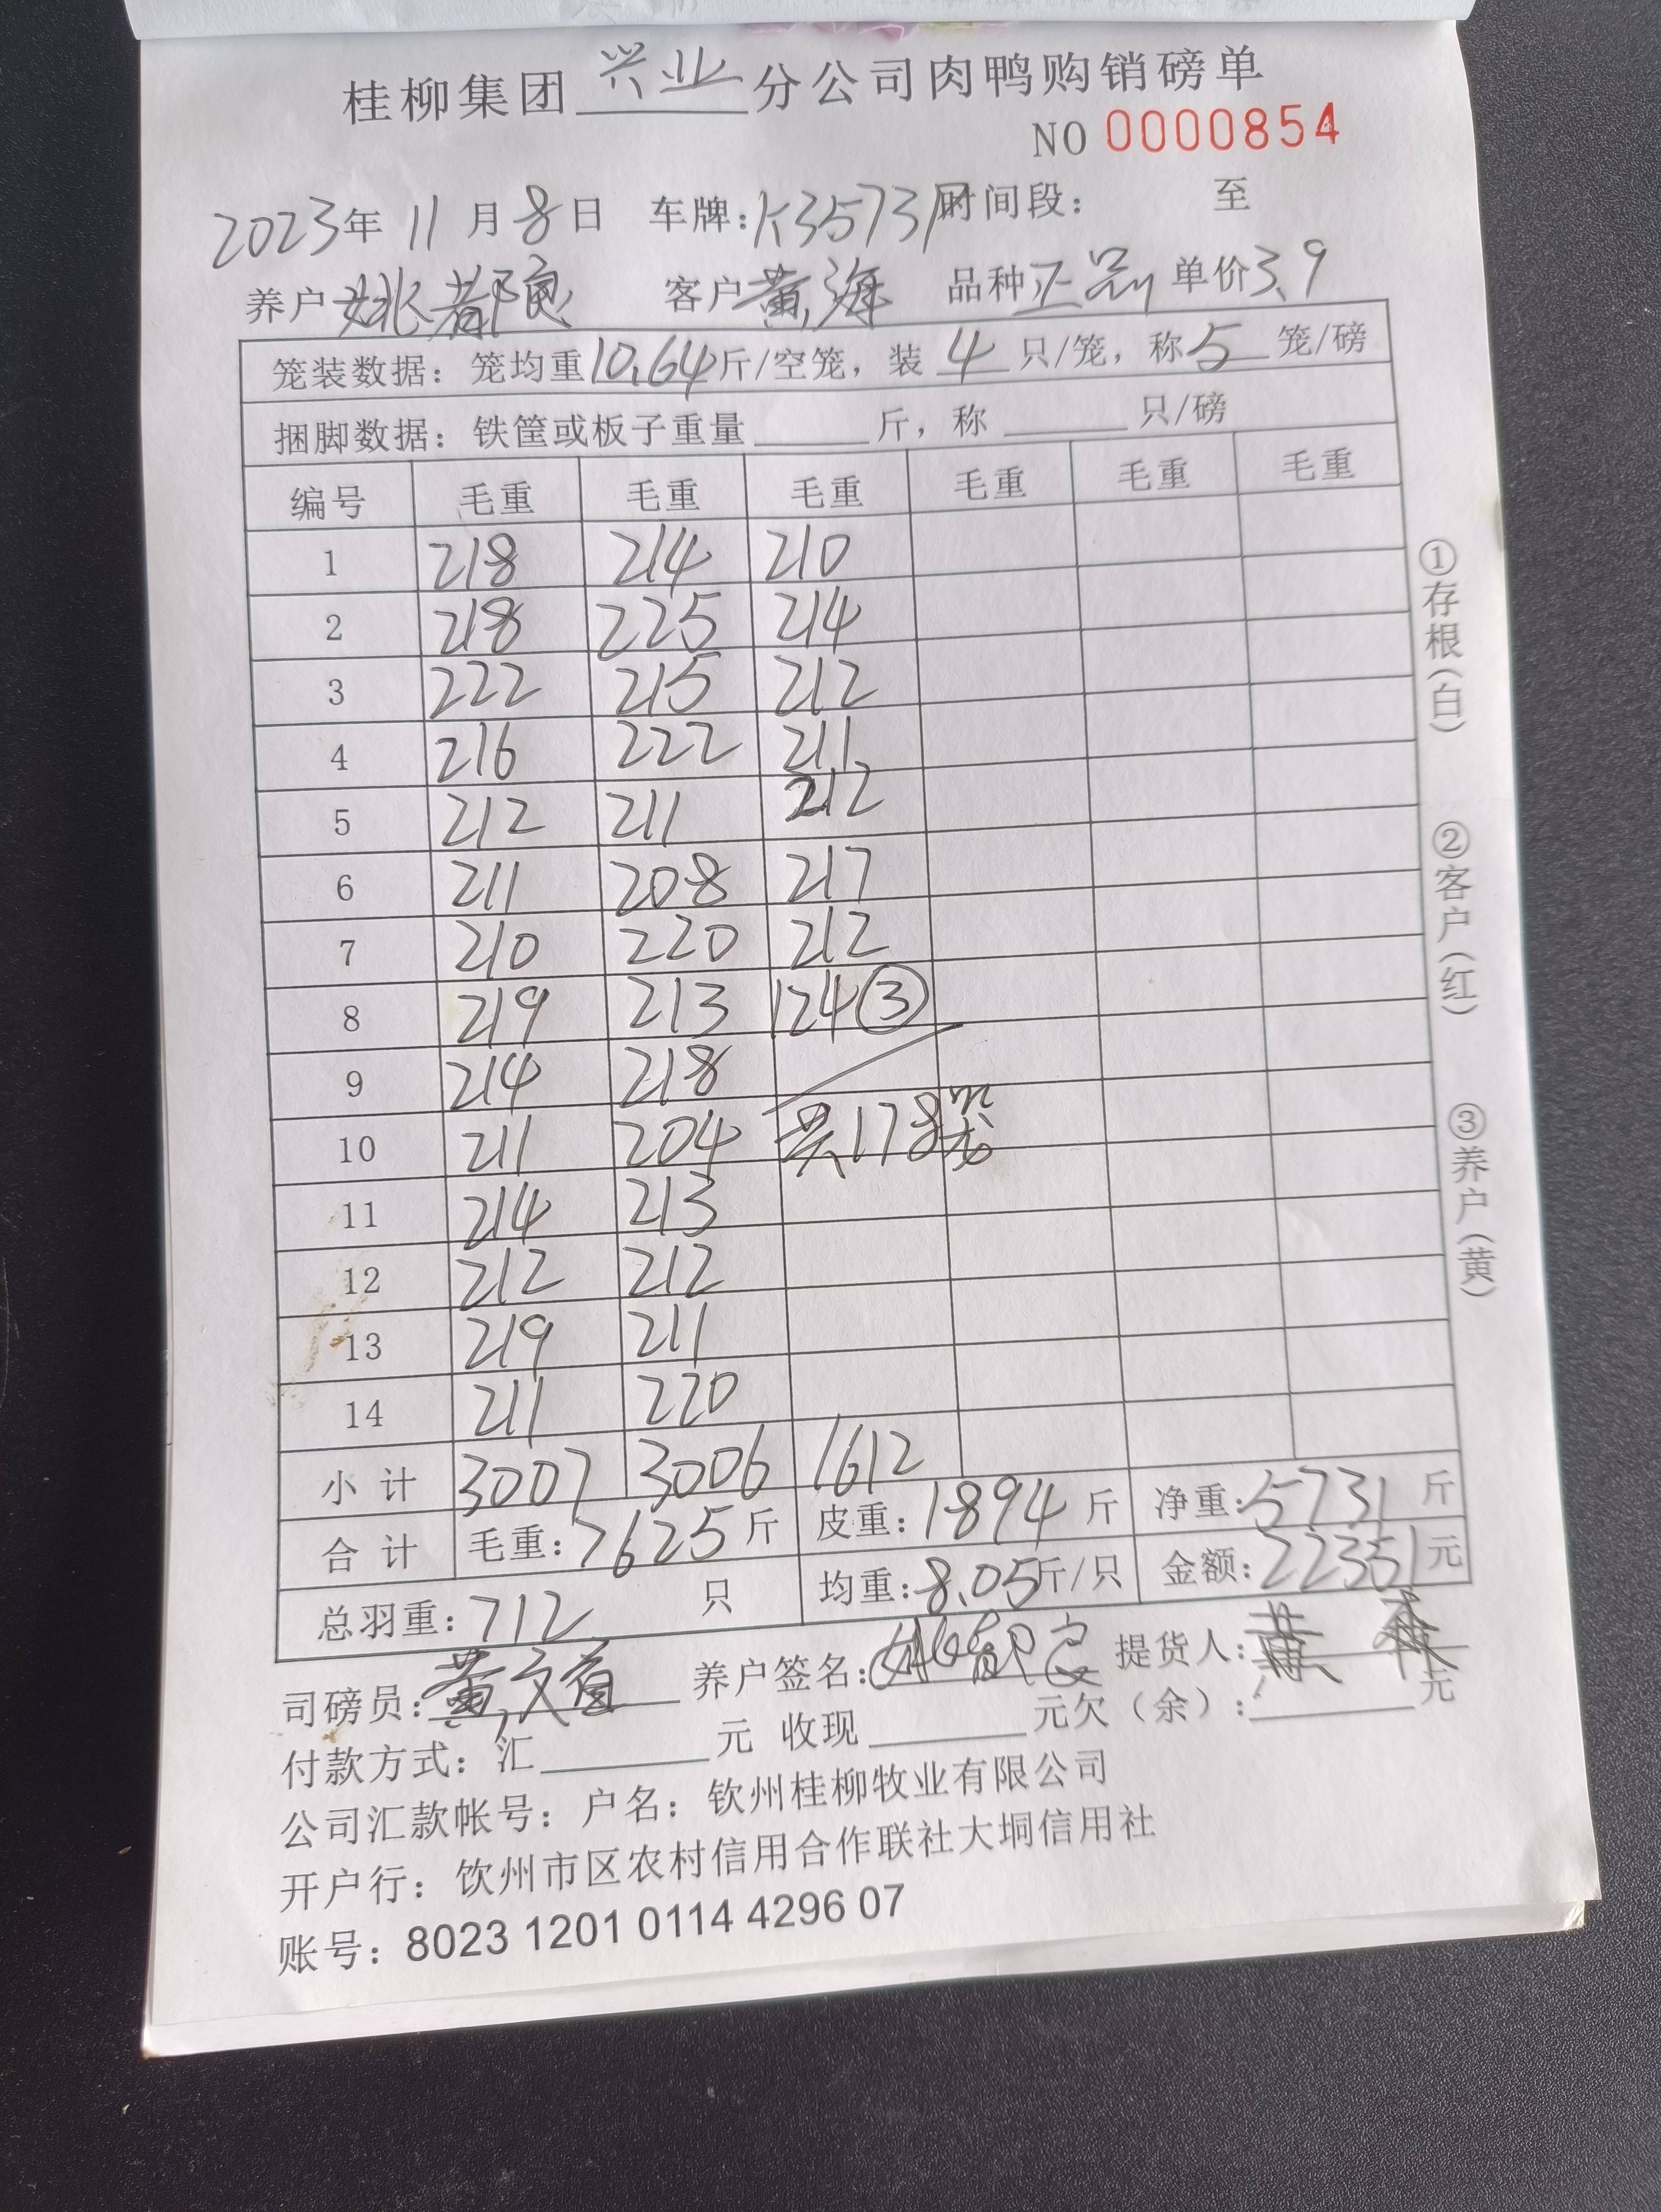 桂柳集团 兴业 分公司肉鸭购销磅单
NO 0000854
2023年 11 月 8 日 车牌: K3573 时间段: 至
养户 姚 良 客户 黄海 品种 正品 单价3.9
笼装数据: 笼均重10.64斤/空笼, 装 4 只/笼, 称 5 笼/磅
捆脚数据: 铁筐或板子重量 斤, 称 只/磅
编号 毛重 毛重 毛重 毛重 毛重 毛重
1 218 214 210
2 218 225 214
3 222 215 212
4 216 222 211
5 212 211 212
6 211 208 217
7 210 220 212
8 219 213 124③
9 214 218
10 211 204 共178笼
11 214 213
12 212 212
13 219 211
14 211 220
小计 3007 3006 1612
合计 毛重: 7625 斤 皮重: 1894 斤 净重: 5731 斤
总羽重: 712 只 均重: 8.05斤/只 金额: 22351元
司磅员: 黄文 养户签名: 姚 良 提货人: 黄
付款方式: 汇 元 收现 元欠(余): 元
公司汇款帐号: 户名: 钦州桂柳牧业有限公司
开户行: 钦州市区农村信用合作联社大垌信用社
账号: 8023 1201 0114 4296 07
①存根(白)
②客户(红)
③养户(黄)